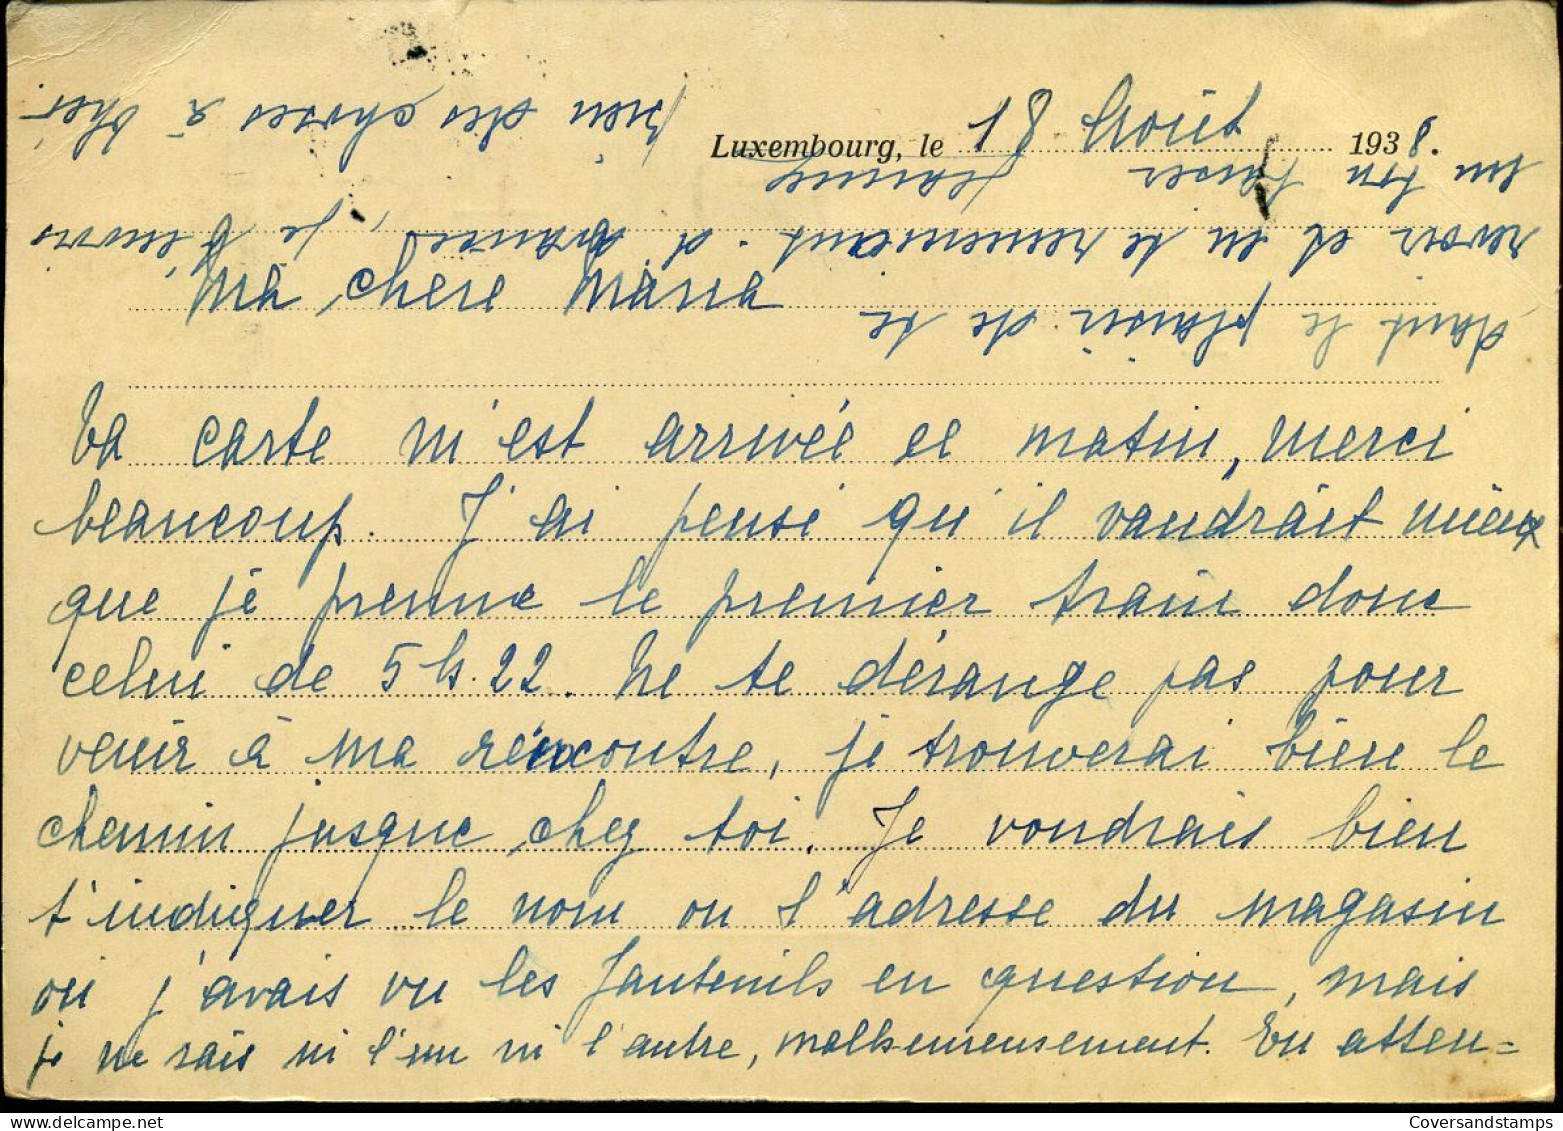 Luxembourg, le 18 Août 1938.
Ma chère Maria
Ta carte m'est arrivée ce matin, merci
beaucoup. J'ai pensé qu'il vaudrait mieux
que je prenne le premier train donc
celui de 5 hs. 22. Ne te dérange pas pour
venir à ma rencontre, je trouverai bien le
chemin jusque chez toi. Je voudrais bien
t'indiquer le nom ou l'adresse du magasin
où j'avais vu les fauteuils en question, mais
je ne sais ni l'un ni l'autre, malheureusement. En atten=
dant le plaisir de te
revoir et en te remerciant d'avance, je t'envoie
un bon baiser
bien des choses à
Coversandstamps